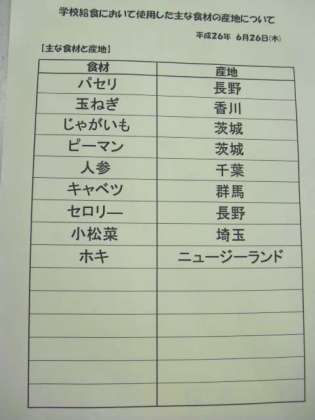 学校給食において使用した主な食材の産地について
平成26年 6月26日(木)
【主な食材と産地】
食材 産地
パセリ 長野
玉ねぎ 香川
じゃがいも 茨城
ピーマン 茨城
人参 千葉
キャベツ 群馬
セロリー 長野
小松菜 埼玉
ホキ ニュージーランド